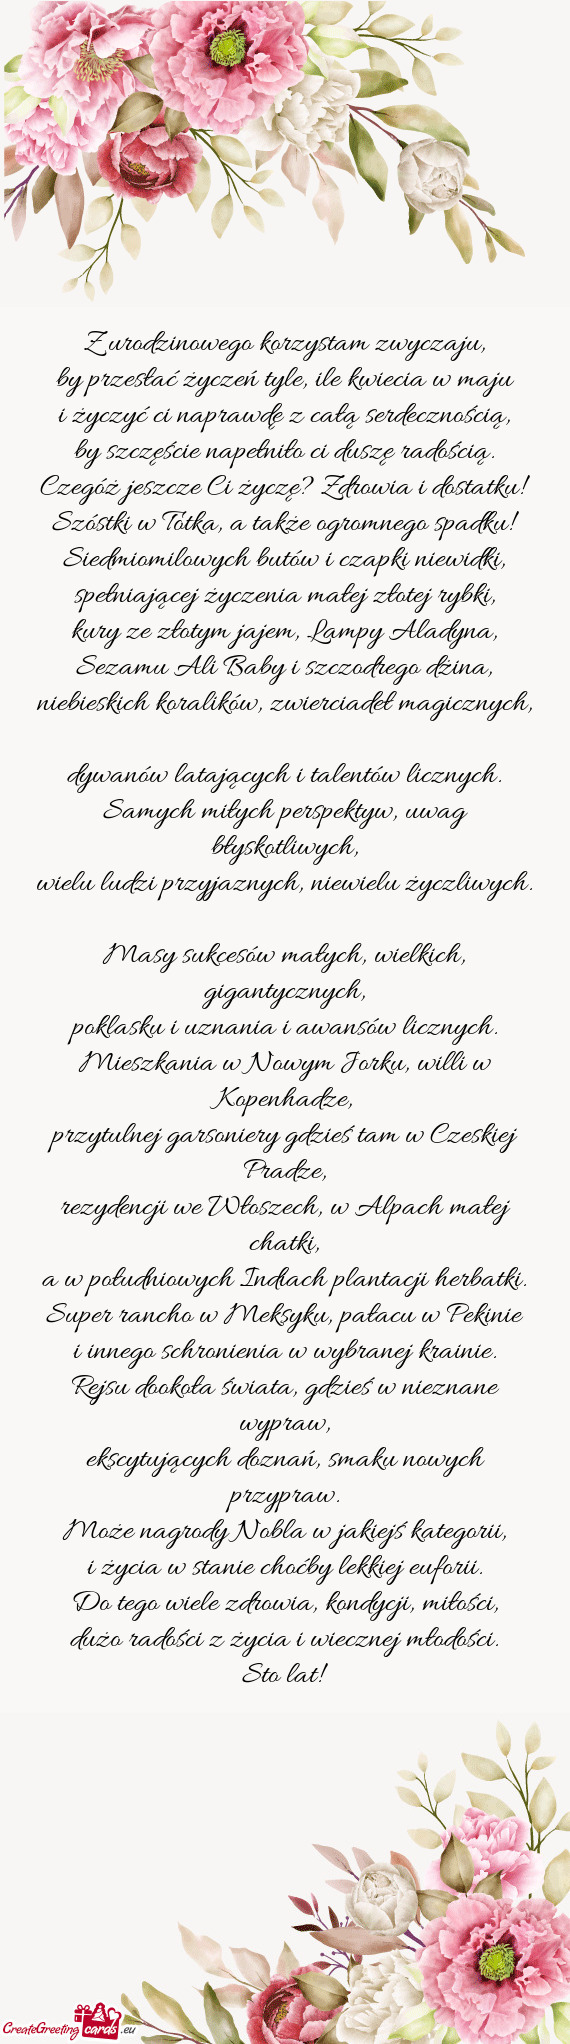 Z urodzinowego korzystam zwyczaju,
by przesłać życzeń tyle, ile kwiecia w maju
i życzyć ci naprawdę z całą serdecznością,
by szczęście napełniło ci duszę radością.
Czegóż jeszcze Ci życzę? Zdrowia i dostatku!
Szóstki w Totka, a także ogromnego spadku!
Siedmiomilowych butów i czapki niewidki,
spełniającej życzenia małej złotej rybki,
kury ze złotym jajem, Lampy Aladyna,
Sezamu Ali Baby i szczodrego dżina,
niebieskich koralików, zwierciadeł magicznych,
dywanów latających i talentów licznych.
Samych miłych perspektyw, uwag
błyskotliwych,
wielu ludzi przyjaznych, niewielu życzliwych.
Masy sukcesów małych, wielkich,
gigantycznych,
poklasku i uznania i awansów licznych.
Mieszkania w Nowym Jorku, willi w
Kopenhadze,
przytulnej garsoniery gdzieś tam w Czeskiej
Pradze,
rezydencji we Włoszech, w Alpach małej
chatki,
a w południowych Indiach plantacji herbatki.
Super rancho w Meksyku, pałacu w Pekinie
i innego schronienia w wybranej krainie.
Rejsu dookoła świata, gdzieś w nieznane
wypraw,
ekscytujących doznań, smaku nowych
przypraw.
Może nagrody Nobla w jakiejś kategorii,
i życia w stanie choćby lekkiej euforii.
Do tego wiele zdrowia, kondycji, miłości,
dużo radości z życia i wiecznej młodości.
Sto lat!
CreateGreeting cards .eu